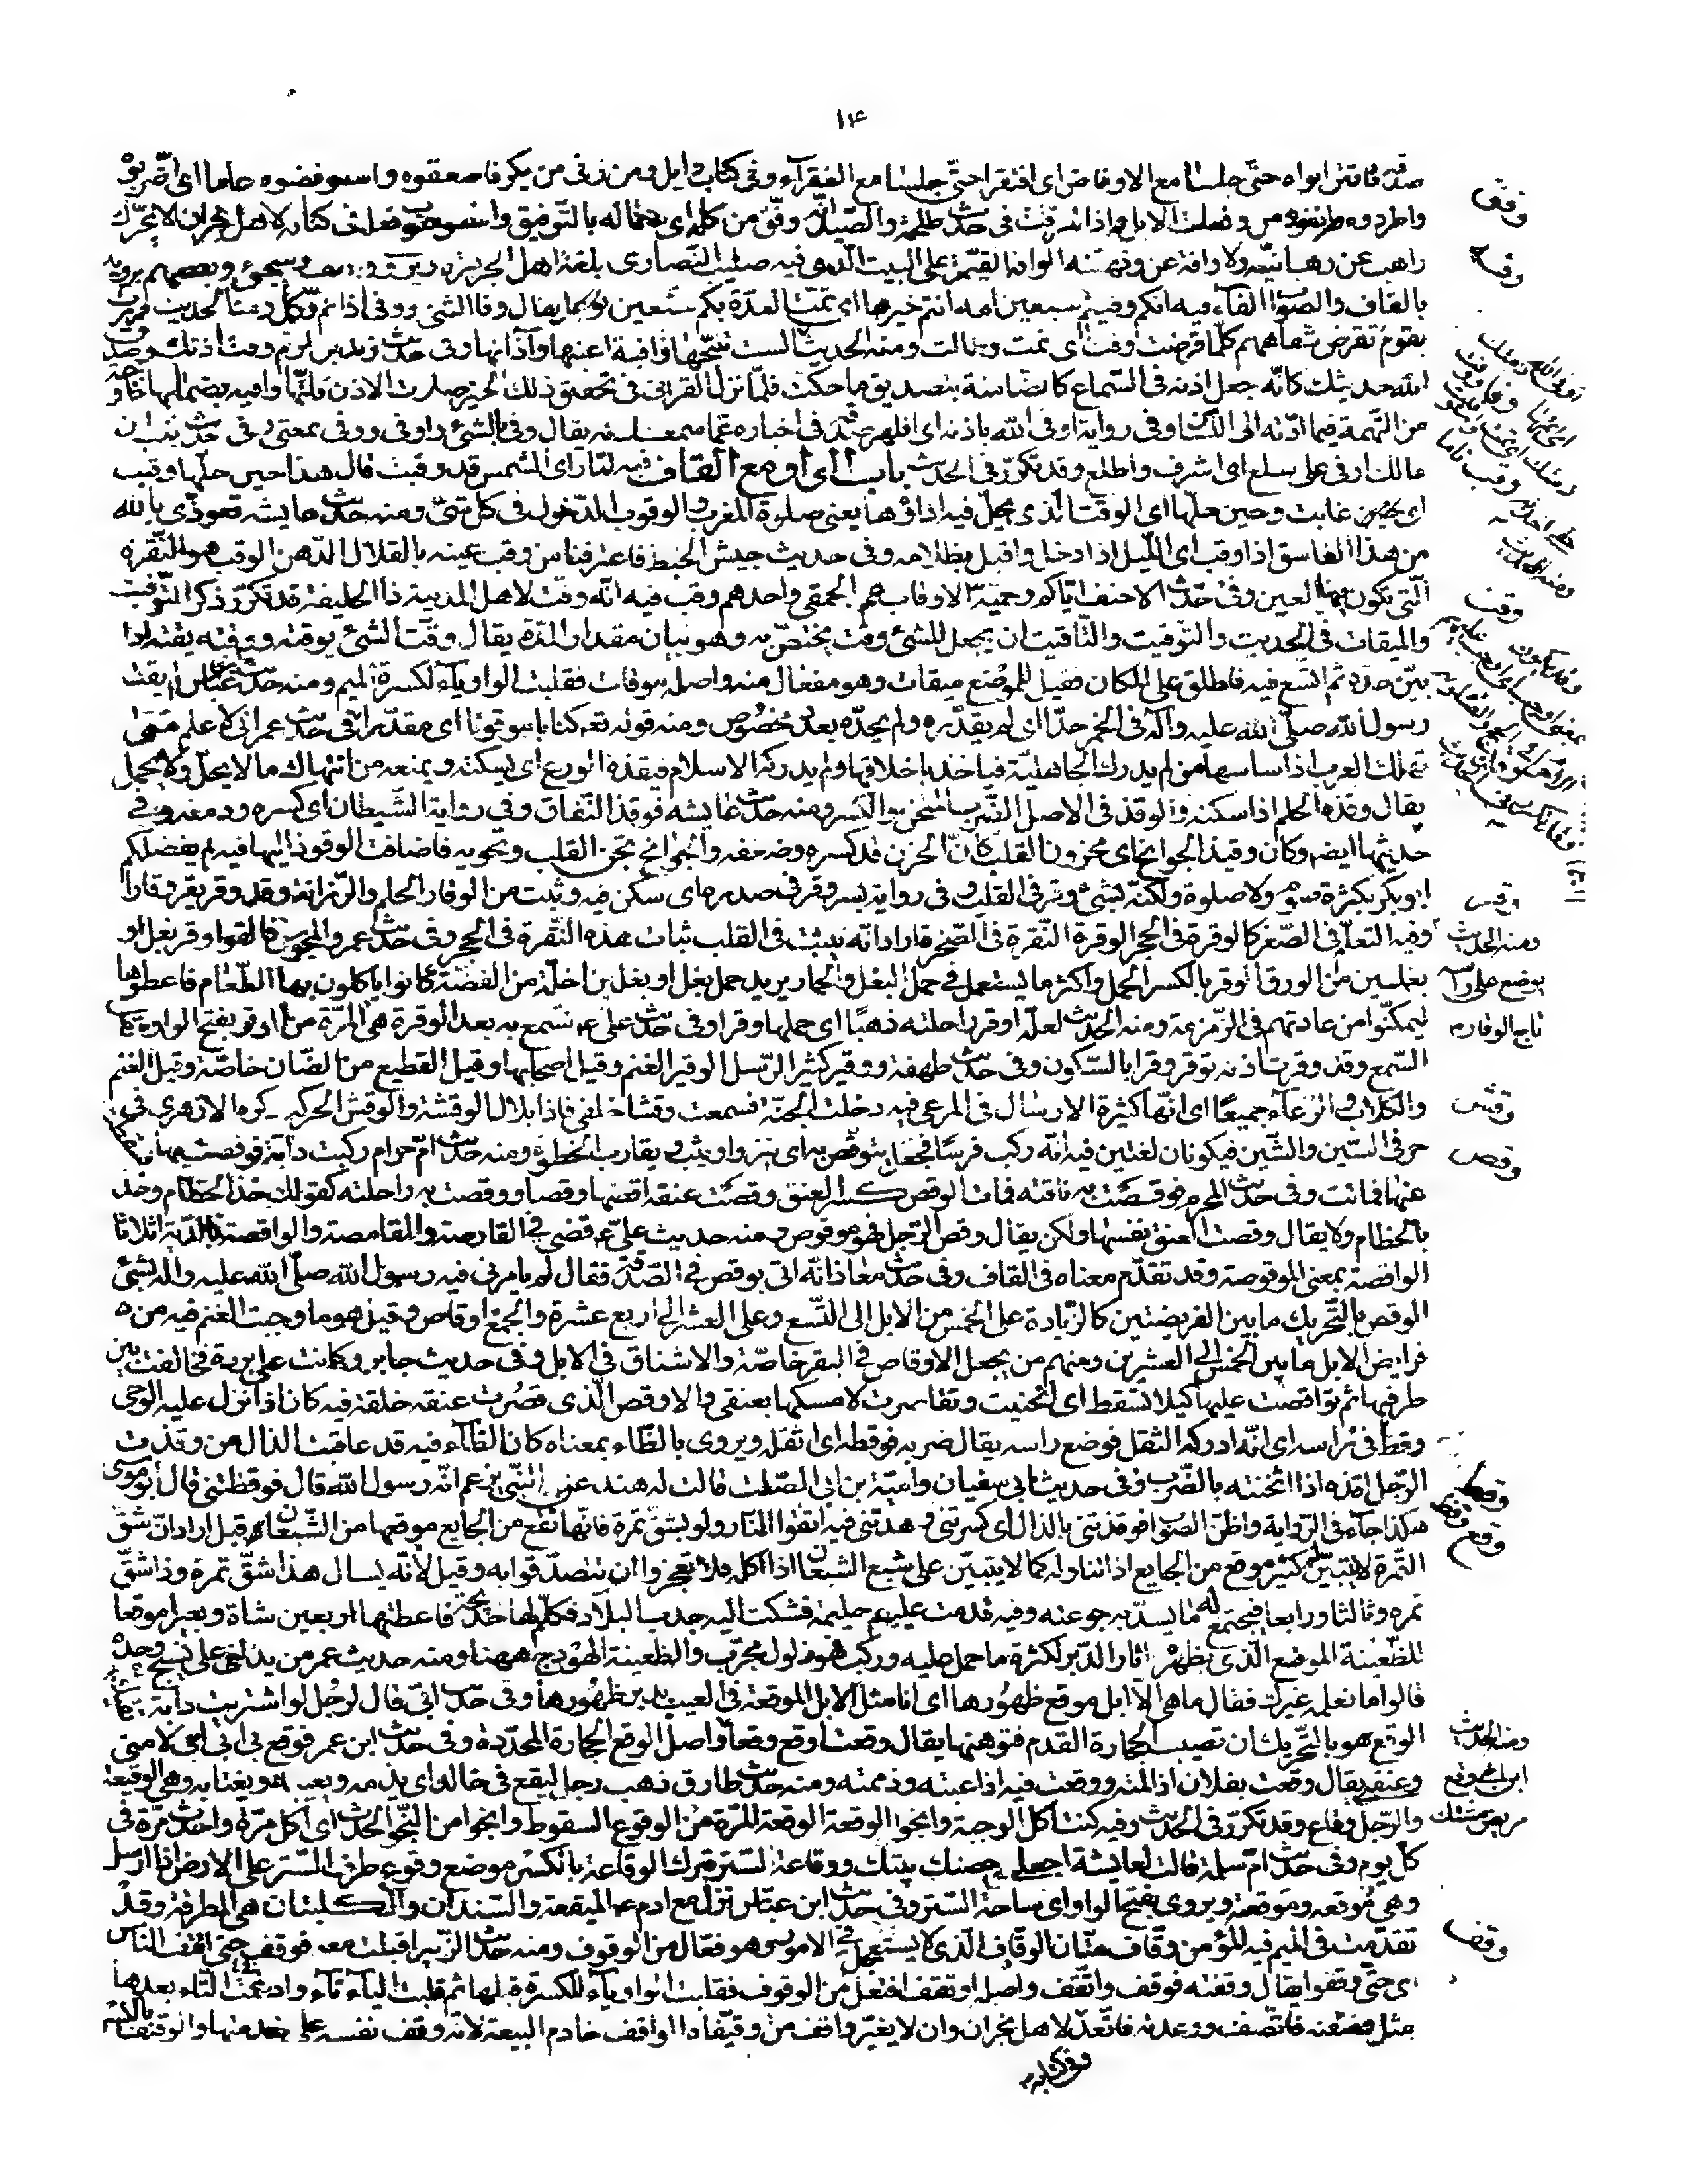 ١٤
صدقه فافتقر ابواه حتى جلسا مع الاوفاض اى افتقرا حتى جلسا مع الفقرآء وفى كتاب وايل ومن زنى من بكر فاصعقوه واستوفضوه عاما اى اضربوه
واطردوه من وفضت الابل اذا تفرقت فى حدث طلحة والصيد انه وفق من اكله اى دعا له بالتوفيق فى كتابه لاهل نجران لا يحرك
راهب عن رهبانيته ولا وافه عن وفهيته الوافه القيم على البيت الذى فيه صليب النصارى بلغة اهل الجزيرة وبعضهم يرويه
بالقاف والصواب الفآء فيه انكم وفيتم سبعين امه انتم خيرها اى تمت العدة بكم سبعين يقال وفا الشئ ووفى اذا تم وكمل ومنه الحديث فمررت
بقوم تقرض شفاههم كلما قرضت وفت اى تمت وطالت ومنه الحديث الست تنتجها وافية اعينها وآذانها وفى حدث زيد بن ارقم وفت اذنك وصدق
الله حديثك كانه جعل اذنه فى السماع كالضامنة بتصديق ما حكت فلما نزل القران فى تحقيق ذلك الخبر صارت الاذن كانها وافيه بضمانها خارجة
من التهمة فيما ادته الى اللسان وفى رواية اوفى الله باذنه اى اظهر صدقه فى اخباره عما سمعت اذنه يقال وفى بالشئ واوفى ووفى بمعنى وفى حدث كعب بن
مالك اوفى على سلع اى اشرف واطلع وقد تكرر فى الحدث باب الواو مع القاف فيه لما راى الشمس قد وقبت قال هذا حين حلها وقبت
اى غابت وحين حلها اى الوقت الذى يحل فيه اداؤها يعنى صلوة المغرب والوقوب الدخول فى كل شئ ومنه حدث عايشه تعوذى بالله
من هذا الغاسق اذا وقب اى الليل اذا دخل واقبل بظلامه وفى حديث جيش الخبط فاغترفنا من وقب عينه بالقلال الدهن الوقب هو النقرة
التى تكون فيها العين وفى حدث الاحنف اياكم وحمية الاوقاب هم الحمقى واحدهم وقب فيه انه وقت لاهل المدينة ذا الحليفة قد تكرر ذكر التوقيت
والميقات فى الحديث والتوقيت والتاقيت ان يجعل للشئ وقت يختص به وهو بيان مقدار المدة يقال وقت الشئ يوقته ووقته يقته اذا
بين حده ثم اتسع فيه فاطلق على المكان فقيل للموضع ميقات وهو مفعال منه واصله موقات فقلبت الواو يآء لكسرة الميم ومنه حدث ابن عباس لم يقت
رسول الله صلى الله عليه وآله فى الخمر حدا اى لم يقدره ولم يحده بعدد مخصوص ومنه قوله تع كتابا موقوتا اى مقدرا فى حدث عمر انى لاعلم متى
تهلك العرب اذا ساسها من لم يدرك الجاهلية فياخذ باخلاقها ولم يدركه الاسلام فيقذه الورع اى يسكنه ويمنعه من انتهاك ما لا يحل ولا يجمل
يقال وقذه الحلم اذا سكنه والوقذ فى الاصل الضرب المثخن والكسر ومنه حدث عايشه فوقذ النفاق وفى رواية الشيطان اى كسره ودمغه وفى
حديثها ايضا وكان وقيذ الجوانح اى محزون القلب كان الحزن قد كسره وضعفه والجوانح تجن القلب وتحويه فاضافت الوقوذ اليها فيه لم يفضلكم
ابو بكر بكثرة صوم ولا صلوة ولكنه بشئ وقر فى القلب وفى رواية لسر وقر فى صدره اى سكن فيه وثبت من الوقار الحلم والرزانة وقد وقر يقر وقارا
وفيه التعلم فى الصغر كالوقرة فى الحجر الوقرة النقرة فى الصخرة اراد انه يثبت فى القلب ثبات هذه النقرة فى الحجر وفى حدث عمر والمجوس فالقوا وقر بغل او
بغلين من الورق الوقر بالكسر الحمل واكثر ما يستعمل فى حمل البغل والحمار يريد حمل بغل او بغلين اخلة من الفضة كانوا ياكلون بها الطعام فاعطوها
ليمكنوا من عادتهم فى الزمزمة ومنه الحدث لعله اوقر راحلته ذهبا اى حملها وقرا وفى حدث على ع تسمع به بعد الوقرة هى المرة من الوقر بفتح الواو ثقل
السمع وقد وقرت اذنه توقر وقرا بالسكون وفى حدث طهفة ووقير كثير الرسل الوقير الغنم وقيل اصحابها وقيل القطيع من الضان خاصة وقيل الغنم
والكلاب والرعآء جميعا اى انها كثيرة الارسال فى المرعى فيه دخلت الجنة فسمعت وقشا خلفى فاذا بلال الوقشة والوقش الحركه ذكره الازهرى فى
حرفى السين والشين فيكونان لغتين فيه انه ركب فرسا فجعل يتوقص به اى ينزو ويثب ويقارب الخطو ومنه حدث ام حرام ركبت دابة فوقصت بها فسقطت
عنها فماتت وفى حدث المحرم فوقصت به ناقته فمات الوقص كسر العنق وقصت عنقه اقصها وقصا ووقصت به راحلته كقولك خذ الخطام وخذ
بالخطام ولا يقال وقصت العنق نفسها ولكن يقال وقص الرجل فهو موقوص ومنه حديث على ع قضى فى القارصة والقامصة والواقصة بالدية اثلاثا
الواقصة بمعنى الموقوصة وقد تقدم معناه فى القاف وفى حدث معاذ انه اتى بوقص فى الصدقة فقال لم يامرنى فيه رسول الله صلى الله عليه واله بشئ
الوقص بالتحريك ما بين الفريضتين كالزيادة على الخمس من الابل الى التسع وعلى العشر الى اربع عشرة والجمع اوقاص وقيل هو ما وجبت الغنم فيه من
فرايض الابل ما بين الخمس الى العشرين ومنهم من يجعل الاوقاص فى البقر خاصة والاشناق فى الابل وفى حديث جابر وكانت على بردة فخالفت بين
طرفيها ثم تواقصت عليها كيلا تسقط اى انحنيت وتقاصرت لامسكها بعنقى والاوقص الذى قصرت عنقه خلقة فيه كان اذا نزل عليه الوحى
وقط فى راسه اى انه ادركه الثقل فوضع راسه يقال ضربه فوقطه اى اثقله ويروى بالظاء بمعناه كان الظآء فيه قد عاقبت الذال من وقذت
الرجل اقذه اذا اثخنته بالضرب وفى حديث ابى سفيان وامية بن ابى الصلت قالت له هند عن النبى يزعم انه رسول الله قال فوقظتنى قال ابو موسى
هكذا جآء فى الرواية واظن الصواب فوقذتنى بالذال اى كسرتنى وهدتنى فيه اتقوا النار ولو بشق تمرة فانها تقع من الجايع موقعها من الشبعان قيل اراد ان شق
التمرة لا يتبين له كثير موقع من الجايع اذا تناوله كما لا يتبين على شبع الشبعان اذا اكله فلا تعجزوا ان تتصدقوا به وقيل لانه يسال هذا شق تمرة وذا شق
تمره وثالثا ورابعا فيجتمع له ما يسد به جوعه وفيه قدمت عليه حليمة فشكت اليه جدب البلاد فكلم لها خديجة فاعطتها اربعين شاة وبعيرا موقعا
للظعينة الموقع الذى بظهره آثار الدبر لكثرة ما حمل عليه وركب فهو ذلول مجرب والظعينة الهودج ههنا ومنه حديث عمر من يدلنى على نسيج وحده
قالوا ما نعلمه غيرك فقال ما هى الا ابل موقع ظهورها اى انا مثل الابل الموقعة فى العيب بدبر ظهورها وفى حدث ابى قال لرجل لو اشتريت دابة
الوقع هو بالتحريك ان تصيب الحجارة القدم فتوهنها يقال وقعت اوقع وقعا واصل الوقع الحجارة المحددة وفى حدث ابن عمر فوقع بى ابى اى لامنى
وعنفنى يقال وقعت بفلان اذا لمته ووقعت فيه اذا عبته وذممته ومنه حدث طارق ذهب رجل ليقع فى خالد اى يذمه ويعيبه ويغتابه وهى الوقيعة
والرجل وقاع وقد تكرر فى الحدث وفيه كنت آكل الوجبة وانجو الوقعة الوقعة المرة من الوقوع السقوط وانجو من النجو الحدث اى آكل مرة واحدث مرة فى
كل يوم وفى حدث ام سلمة قالت لعايشة اجعلى حصنك بيتك ووقاعة الستر قبرك الوقاعة بالكسر موضع وقوع طرف الستر على الارض اذا ارسل
وهى موقعه وموقعته ويروى بفتح الواو اى ساحة الستر وفى حدث ابن عباس نزل مع ادم ع الميقعة والسندان والكلبتان هى المطرقة وقد
تقدمت فى الميم فيه المؤمن وقاف متان الوقاف الذى لا يستعجل فى الامور وهو فعال من الوقوف ومنه حدث الزبير اقبلت معه فوقف حتى اتقف الناس
اى حتى وقفوا يقال وقفته فوقف واتقف واصله اوتقف افتعل من الوقوف فقلبت الواو يآء للكسرة قبلها ثم قلبت اليآء تآء وادغمت التاء بعدها
مثل وصفته فاتصف ووعدته فاتعد لاهل نجران وان لا يغير واقف من وقيفاه الواقف خادم البيعة لانه وقف نفسه على خدمتها والوقيفى
وفى كتابه
وفق
وفه
وقت
وقس
ومنه الحديث
يوضع على راسه
تاج الوقار
وقش
وقص
وقط
وقظ
وقع
ومنه الحديث
ابن اخى وقع
وقف